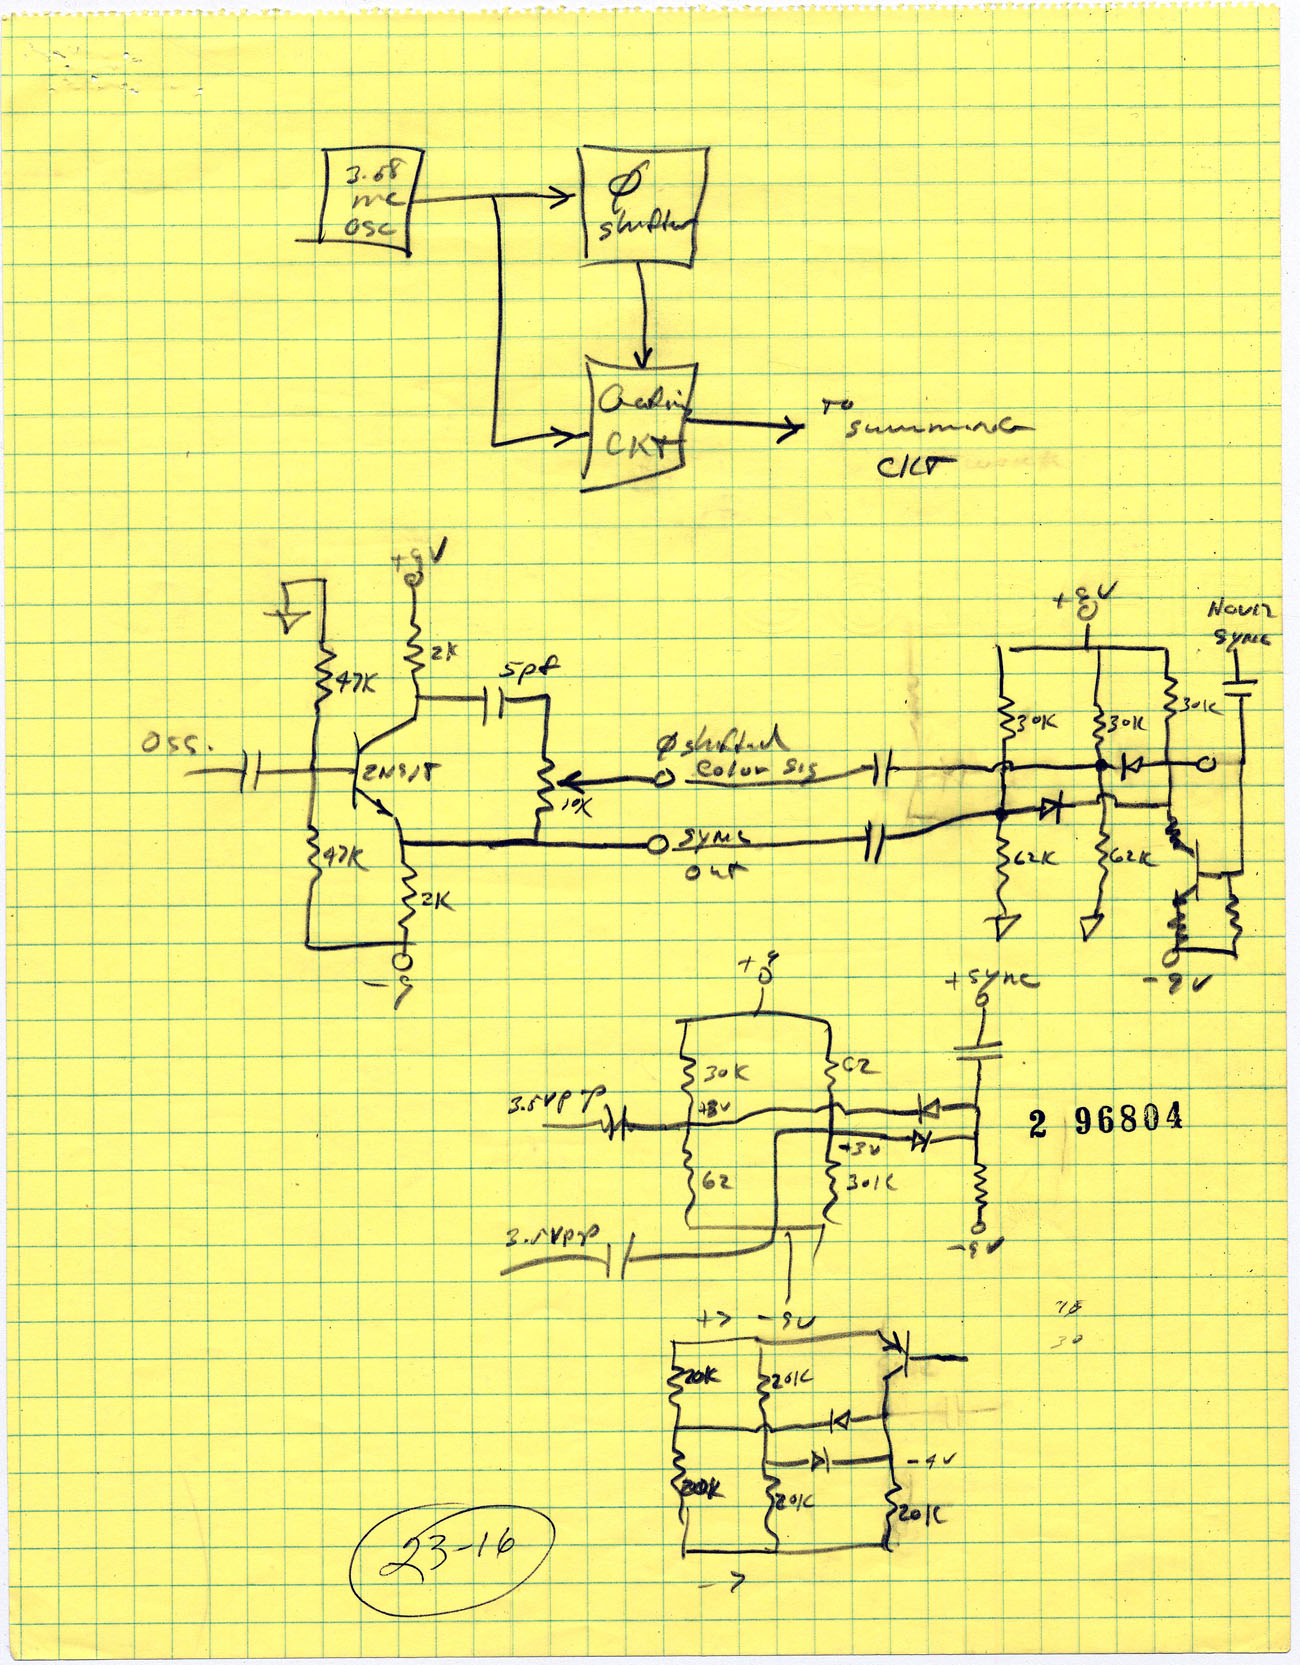 3.58
mc
osc
φ
shifter
CKT
TO
summing
CKT
+9V
2K
5pf
47K
OSC.
2N918
10K
47K
2K
-9
φ shifted
color sig
sync
out
+9V
30K
30K
30K
sync
62K
62K
-9V
+9
+sync
30K
62
3.5VPP
+3V
-3V
62
30K
3.5VPP
-9V
-9V
2 96804
+7
20K
20K
-4V
20K
20K
20K
-7
23-16